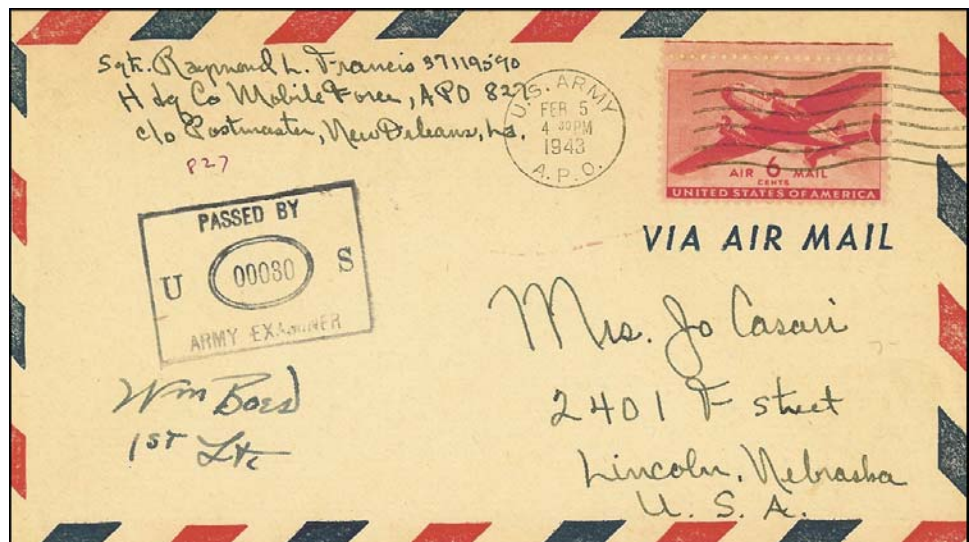 Sgt. Raymond L. Francis 37119590
Hdq Co Mobile Force, APO 827
c/o Postmaster, New Orleans, La.
827
U.S. ARMY
FEB 5
4 30 PM
1943
A.P.O.
AIR 6 MAIL
CENTS
UNITED STATES OF AMERICA
VIA AIR MAIL
PASSED BY
U 00080 S
ARMY EXAMINER
Wm
1ST Lt.
Mrs. Jo Casari
2401 F street
Lincoln, Nebraska
U. S. A.